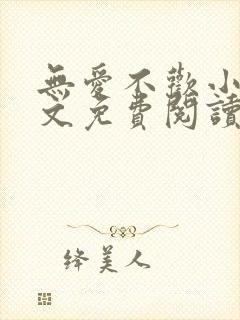 無愛不歡小
文免費閱讀
绛美人